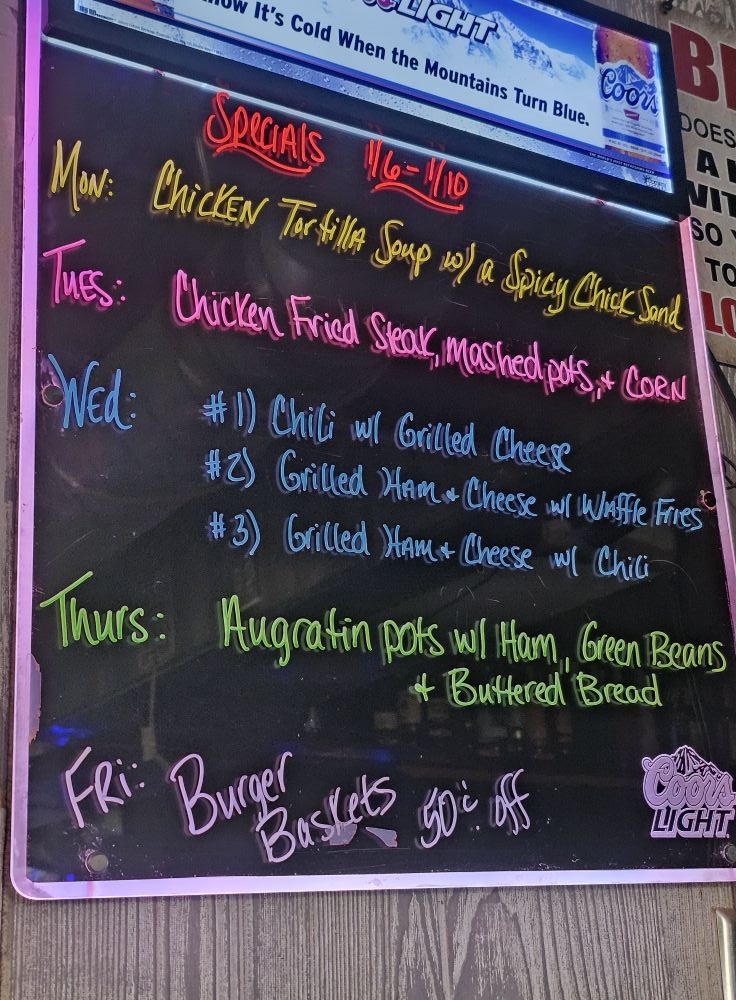 LIGHT
ow It's Cold When the Mountains Turn Blue.
Coors
Specials 1/6-1/10
Mon: Chicken Tortilla Soup w/ a Spicy Chick Sand
Tues: Chicken Fried Steak, mashed pots, + Corn
Wed: #1) Chili w/ Grilled Cheese
#2) Grilled Ham + Cheese w/ Waffle Fries
#3) Grilled Ham + Cheese w/ Chili
Thurs: Augratin pots w/ Ham, Green Beans
+ Buttered Bread
Fri: Burger
Baskets 50¢ off
Coors
LIGHT
DOES
A
SO
TO
LO